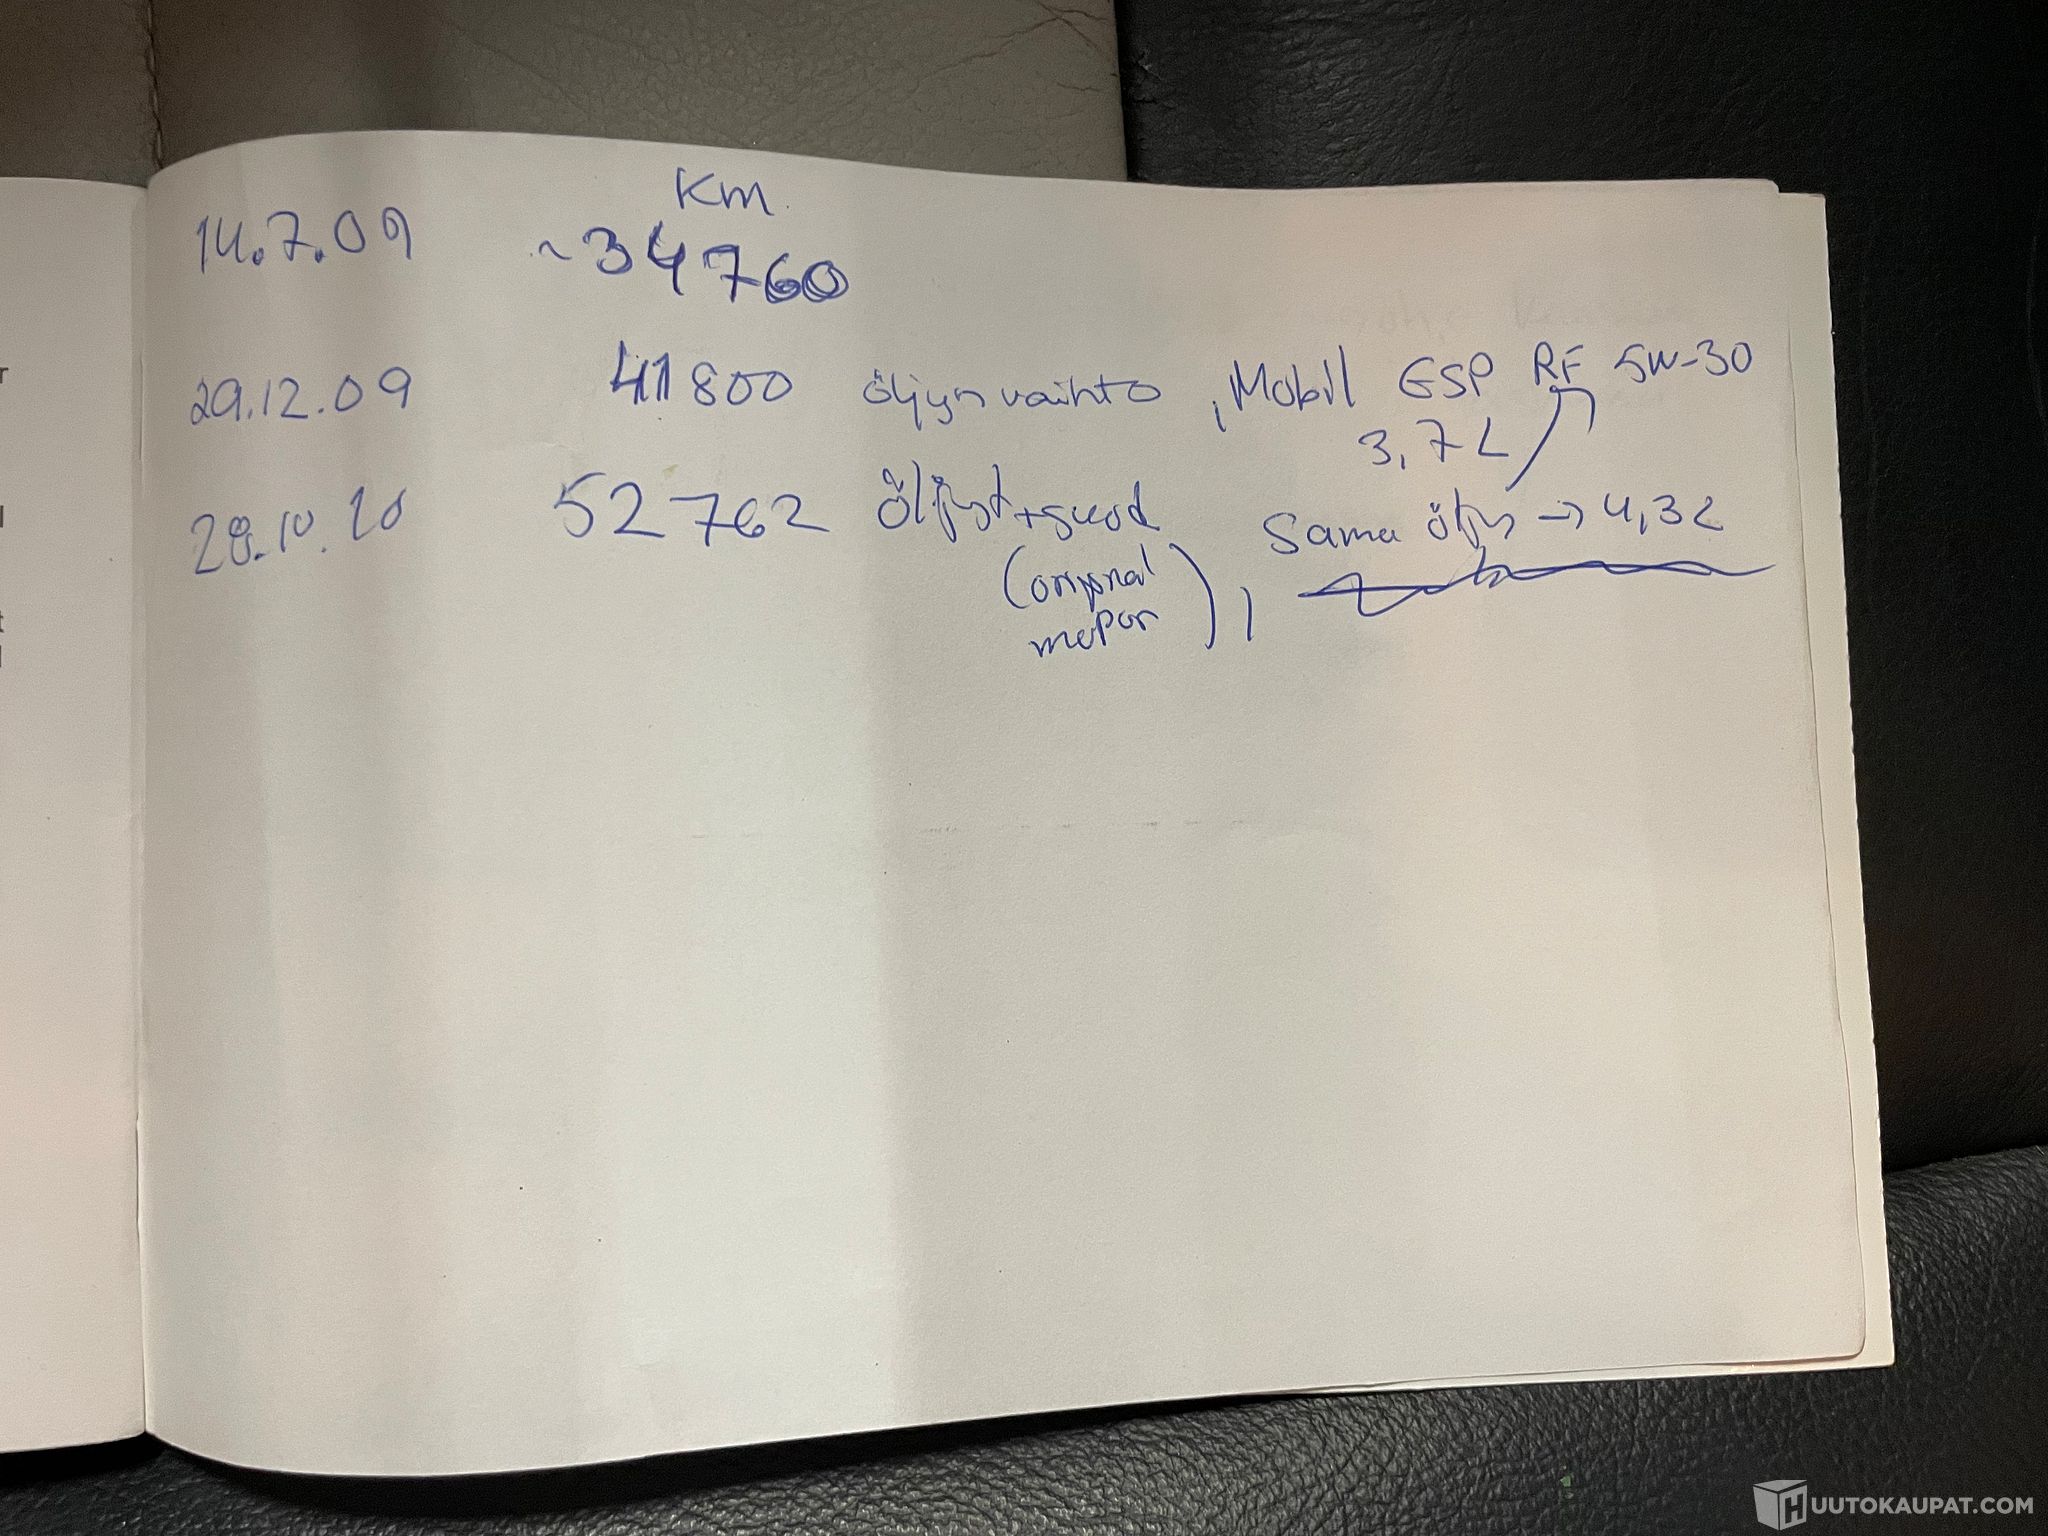 Km
14.7.09 ~34760
29.12.09 41800 öljyn vaihto, Mobil ESP RF 5W-30
3,7 L
28.10.10 52762 Öljyt + suod Sama öljy → 4,3L
(original
mopar),
r
l
t
l
HUUTOKAUPAT.COM